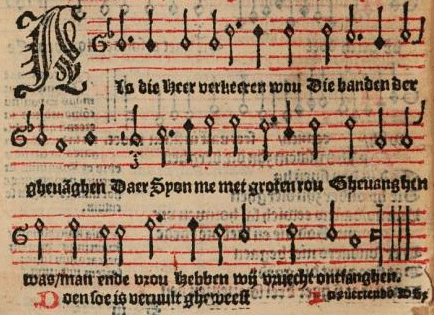 Als die Heer verkeeren wou Die banden der
ghevāghen Daer Syon me met groten rou Ghevanghen
was/man ende vrou Hebben wij vruecht ontfanghen.
Doen soe is vervult gheweest